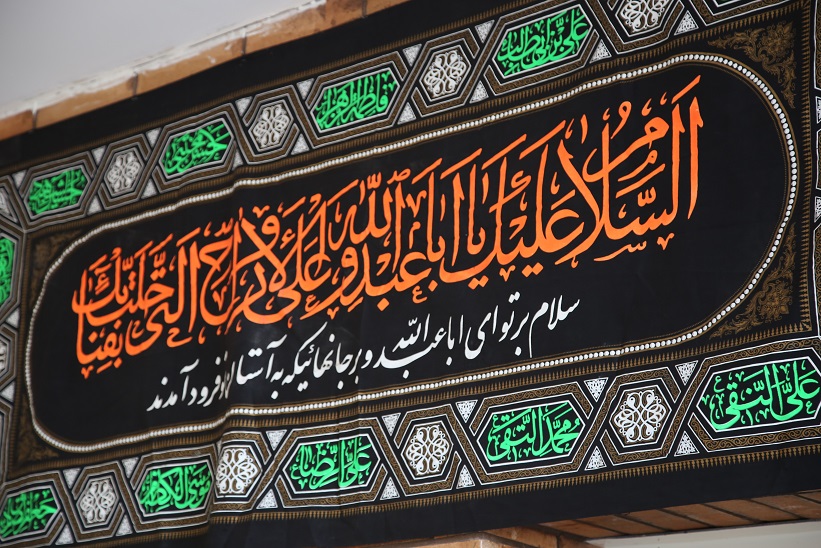 علی بن ابیطالب
فاطمة الزهراء
حسن مجتبی
السلام علیک یا اباعبدالله و علی الارواح التی حلت بفنائک
سلام بر تو ای اباعبدالله و بر جانهائیکه به آستا فرود آمدند
علی النقی
محمد التقی
علی الرضا
موسی الکاظم
جعفر الصادق